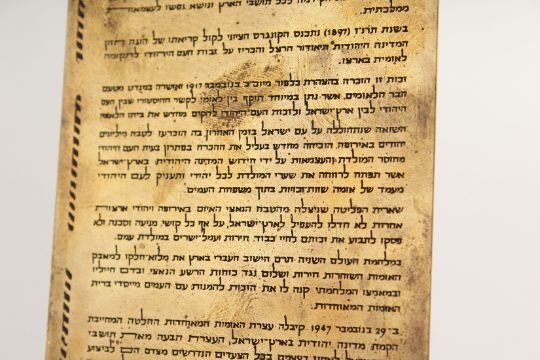 ממלכתית.
בשנת תרנ"ז (1897) נתכנס הקונגרס הציוני לקול קריאתו של הוגה חזון
המדינה היהודית תיאודור הרצל והכריז על זכות העם היהודי לתקומה
לאומית בארצו.
זכות זו הוכרה בהצהרת בלפור מיום ב' בנובמבר 1917 ואושרה במנדט מטעם
חבר הלאומים, אשר נתן במיוחד תוקף בין-לאומי לקשר ההיסטורי שבין העם
היהודי לבין ארץ-ישראל ולזכות העם היהודי להקים מחדש את ביתו הלאומי.
השואה שנתחוללה על עם ישראל בזמן האחרון, בה הוכרעו לטבח מיליונים
יהודים באירופה, הוכיחה מחדש בעליל את ההכרח בפתרון בעית העם היהודי
מחוסר המולדת והעצמאות על ידי חידוש המדינה היהודית בארץ-ישראל,
אשר תפתח לרווחה את שערי המולדת לכל יהודי ותעניק לעם היהודי
מעמד של אומה שוות-זכויות בתוך משפחת העמים.
שארית הפליטה שניצלה מהטבח הנאצי האיום באירופה ויהודי ארצות
אחרות לא חדלו להעפיל לארץ-ישראל, על אף כל קושי, מניעה וסכנה ולא
פסקו לתבוע את זכותם לחיי כבוד, חירות ועמל-ישרים במולדת עמם.
במלחמת העולם השניה תרם הישוב העברי בארץ את מלוא-חלקו למאבק
האומות השוחרות חירות ושלום נגד כוחות הרשע הנאצי, ובדם חייליו
ובמאמצו המלחמתי קנה לו את הזכות להמנות עם העמים מייסדי ברית
האומות המאוחדות.
ב-29 בנובמבר 1947 קיבלה עצרת האומות המאוחדות החלטה המחייבת
הקמת מדינה יהודית בארץ-ישראל, העצרת תבעה מאת תושבי